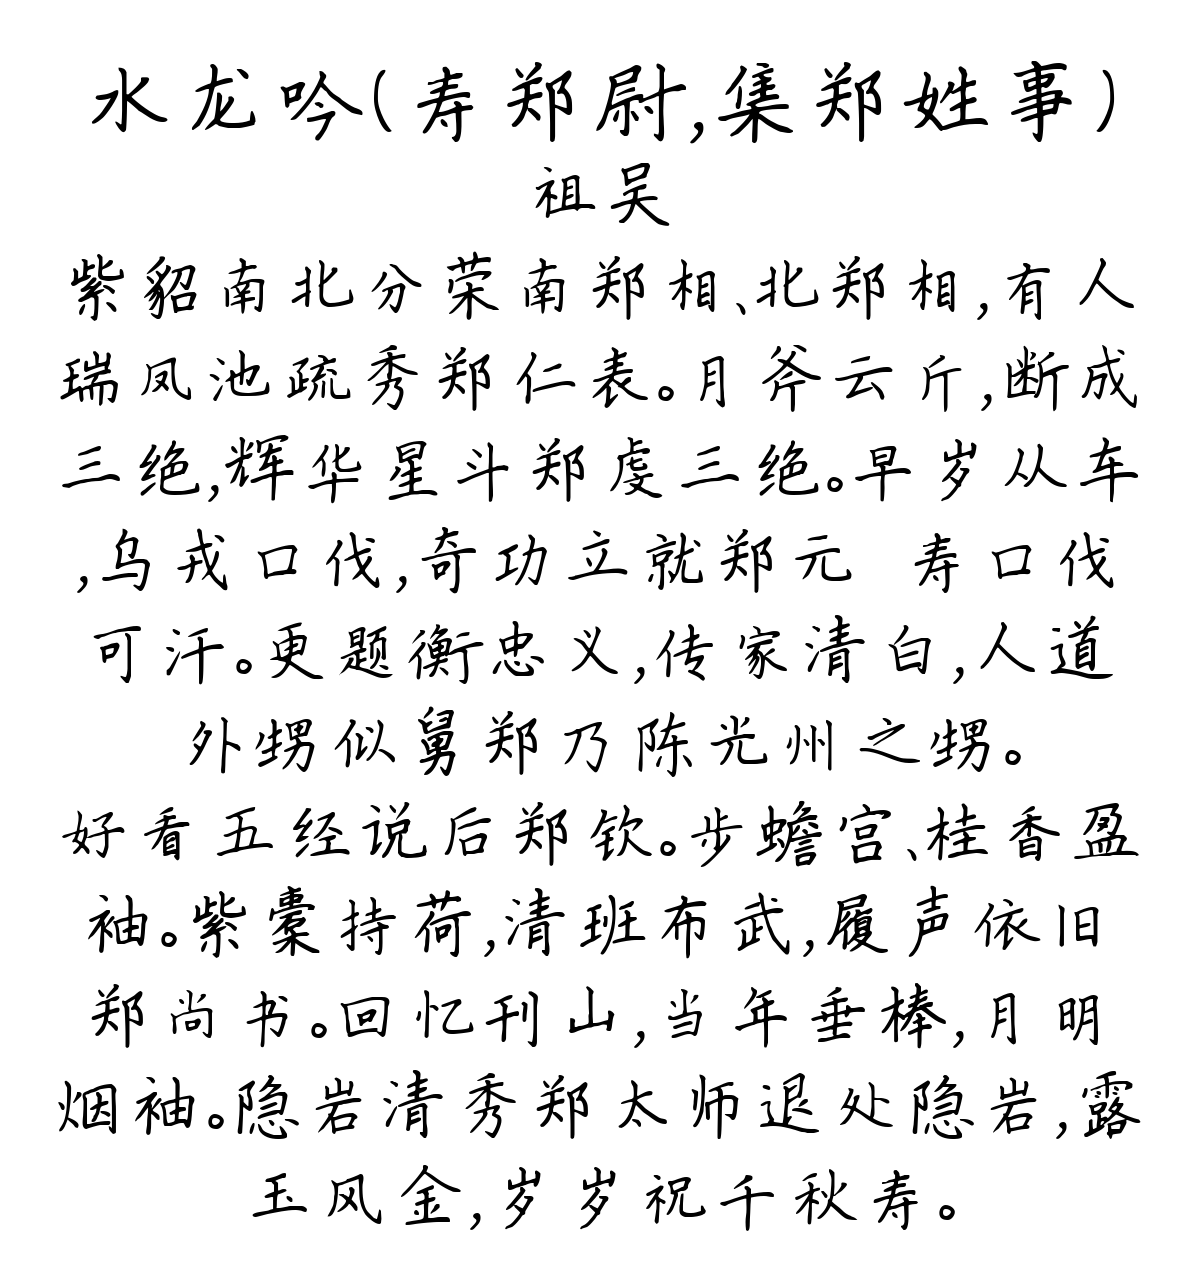 水龙吟(寿郑尉,集郑姓事)
祖吴
紫貂南北分荣南郑相、北郑相,有人
瑞凤池疏秀郑仁表。月斧云斤,断成
三绝,辉华星斗郑虔三绝。早岁从车
,乌戎口伐,奇功立就郑元 寿口伐
可汗。更题衡忠义,传家清白,人道
外甥似舅郑乃陈光州之甥。
好看五经说后郑钦。步蟾宫、桂香盈
袖。紫橐持荷,清班布武,履声依旧
郑尚书。回忆刊山,当年垂棒,月明
烟袖。隐岩清秀郑太师退处隐岩,露
玉风金,岁岁祝千秋寿。